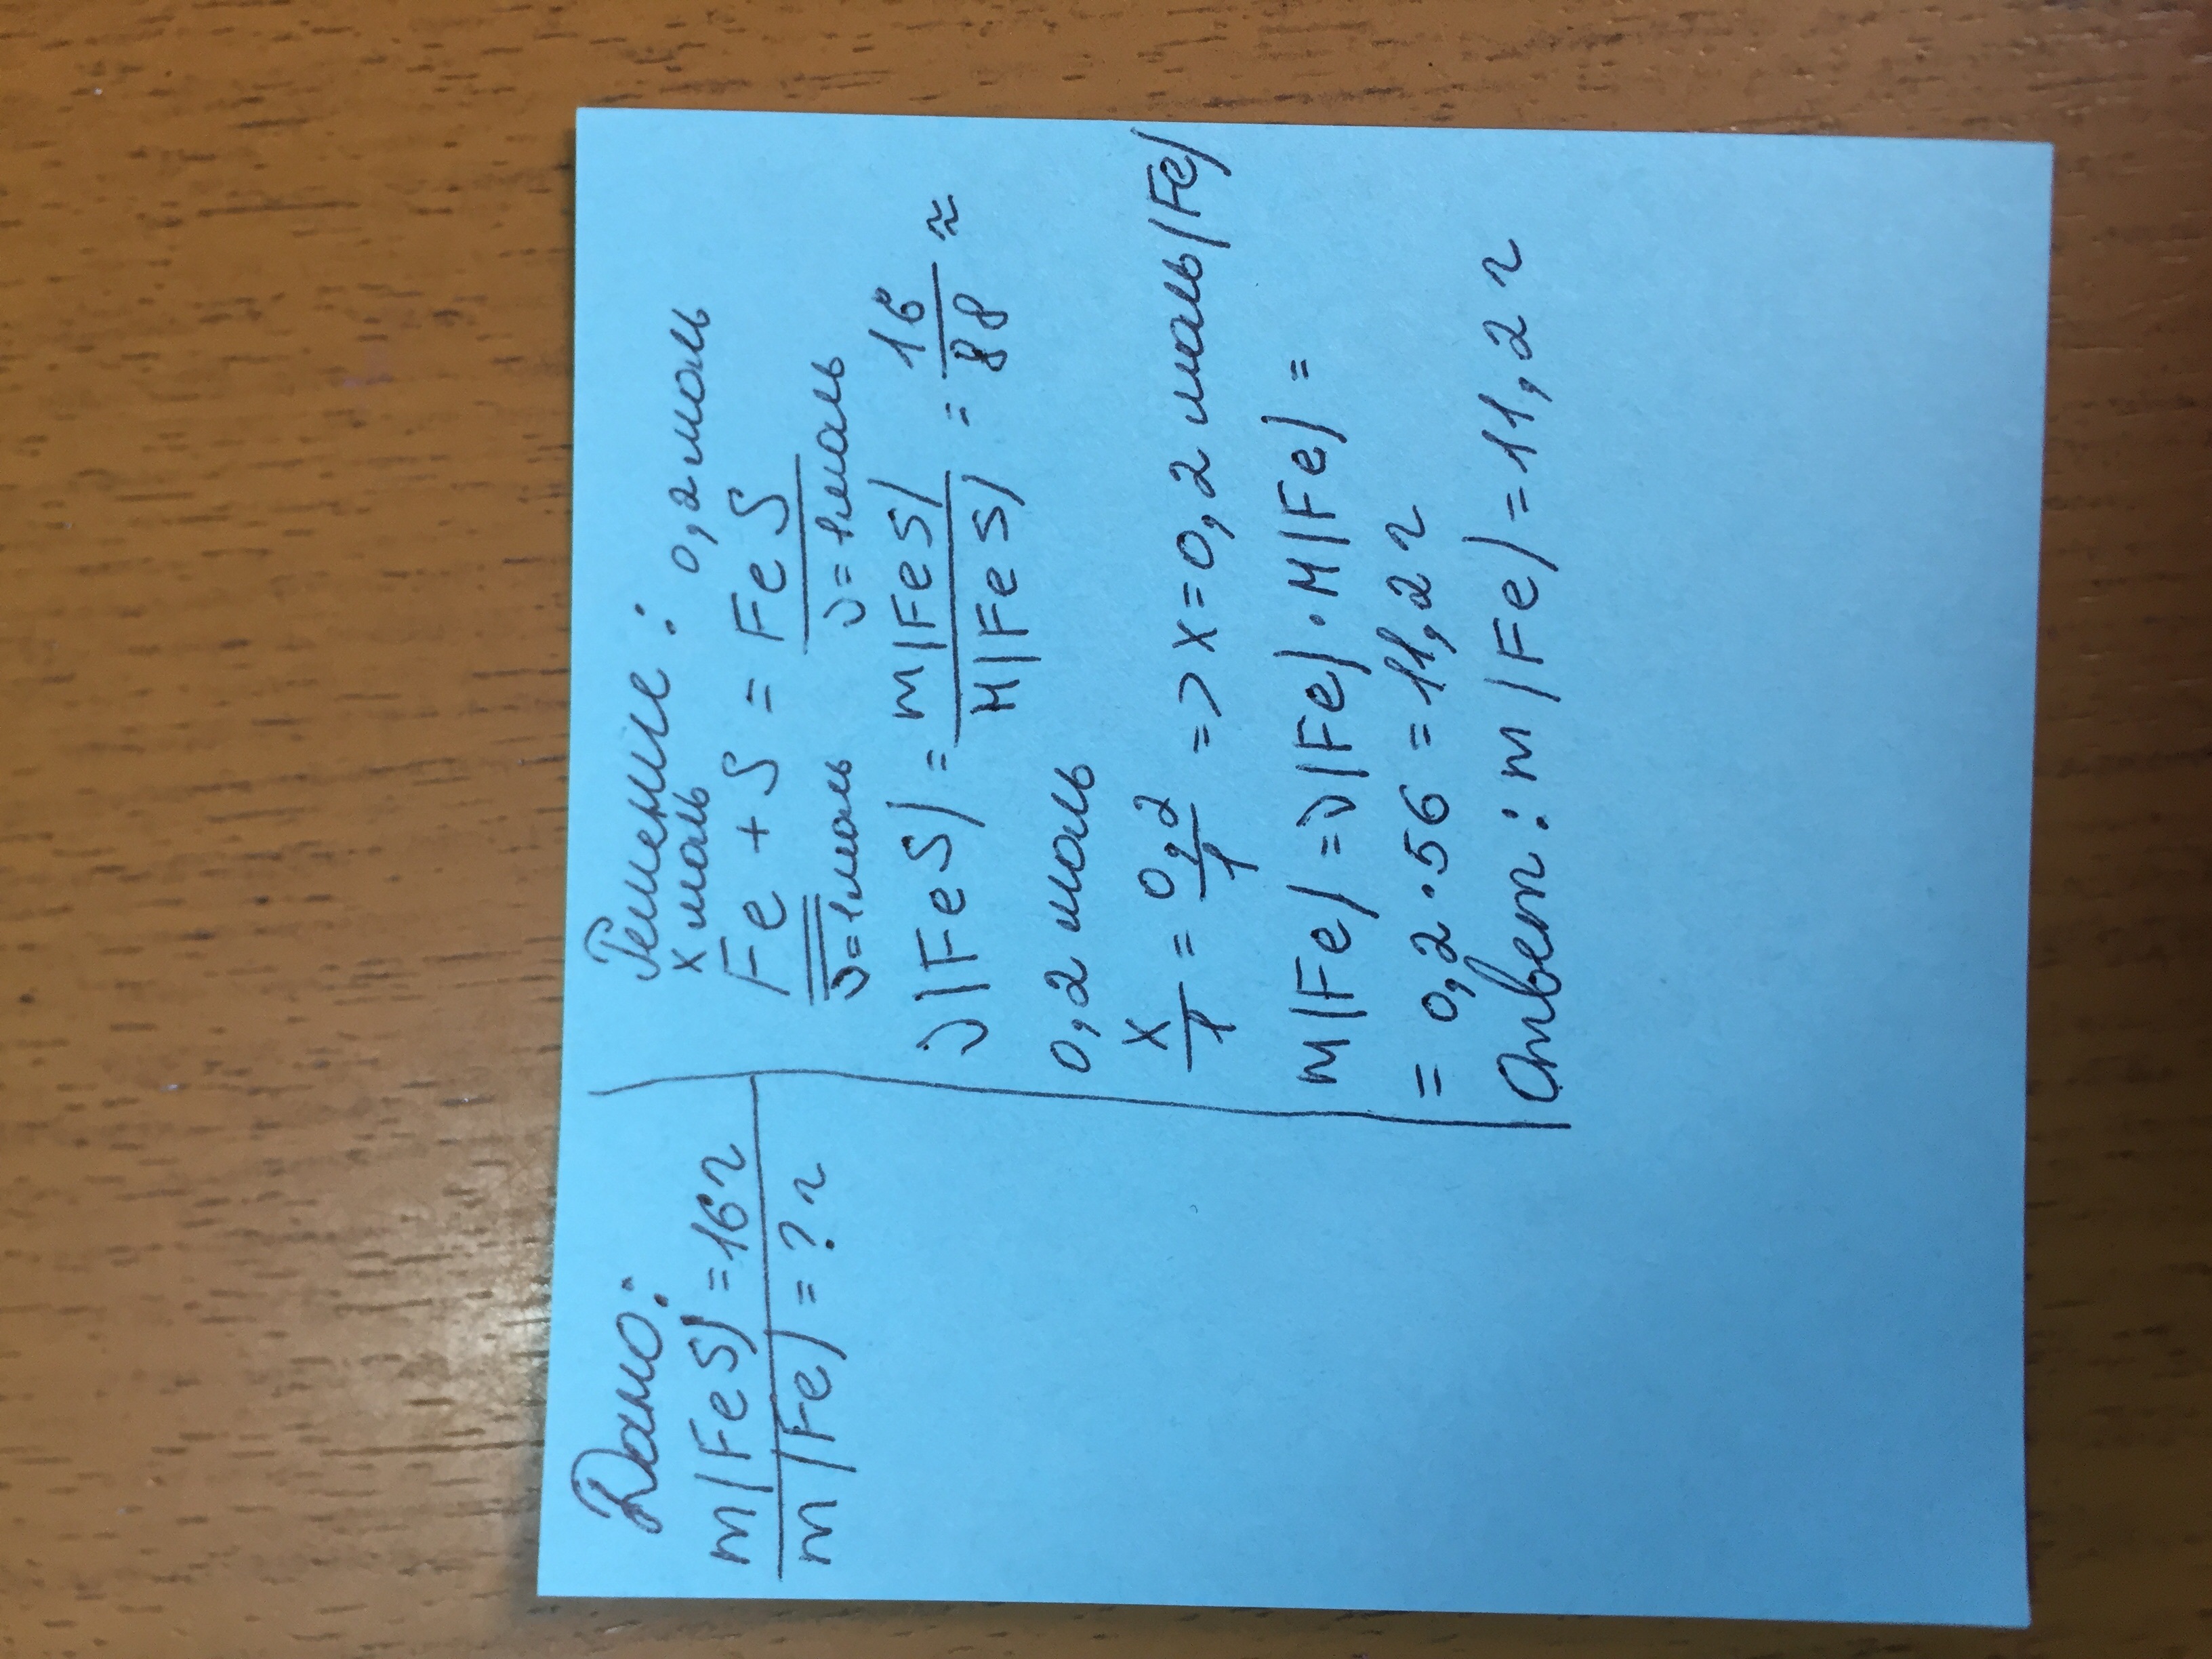 Дано:
m(FeS)=16г
m(Fe)=?г
Решение:
х моль 0,2 моль
Fe + S = FeS
ν=1моль ν=1моль
ν(FeS)= m(FeS)/M(FeS) = 16/88 ≈
0,2 моль
x/1 = 0,2/1 => x=0,2 моль(Fe)
m(Fe)=ν(Fe)·M(Fe)=
= 0,2·56=11,2г
Ответ: m(Fe)=11,2г